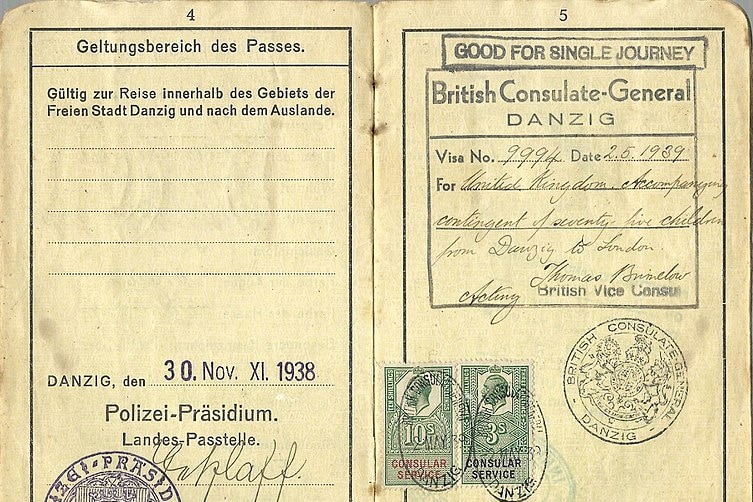 4
Geltungsbereich des Passes.
Gültig zur Reise innerhalb des Gebiets der
Freien Stadt Danzig und nach dem Auslande.
DANZIG, den 30. Nov. XI. 1938
Polizei-Präsidium.
Landes-Passtelle.
ZEI-PRÄSID
5
GOOD FOR SINGLE JOURNEY
British Consulate-General
DANZIG
Visa No. 9994 Date 2.5.1939
For United Kingdom. Accompanying
contingent of seventy-five children
from Danzig to London.
Thomas Brimelow
Acting British Vice Consul
BRITISH CONSULATE-GENERAL
DANZIG
10s 3s
CONSULAR SERVICE
CONSULAR SERVICE